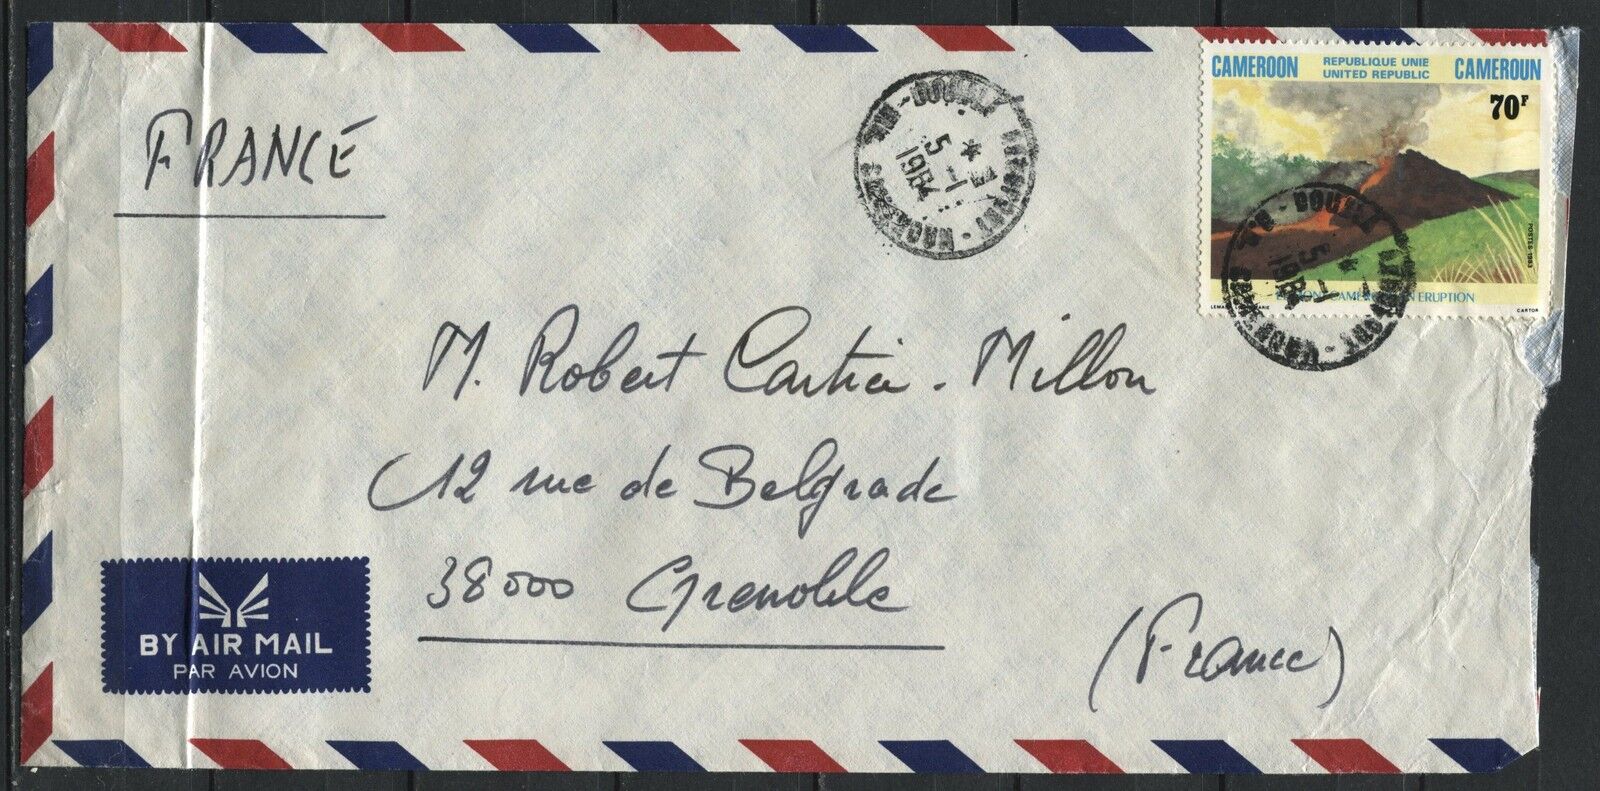 FRANCE
CAMEROON REPUBLIQUE UNIE CAMEROUN
UNITED REPUBLIC
70F
POSTES-1983
CAMEROUN EN ERUPTION
CARTOR
DOUALA
5-1
1984
DOUALA
5-1
1984
M. Robert Cartier-Millon
12 rue de Belgrade
38000 Grenoble
(France)
BY AIR MAIL
PAR AVION